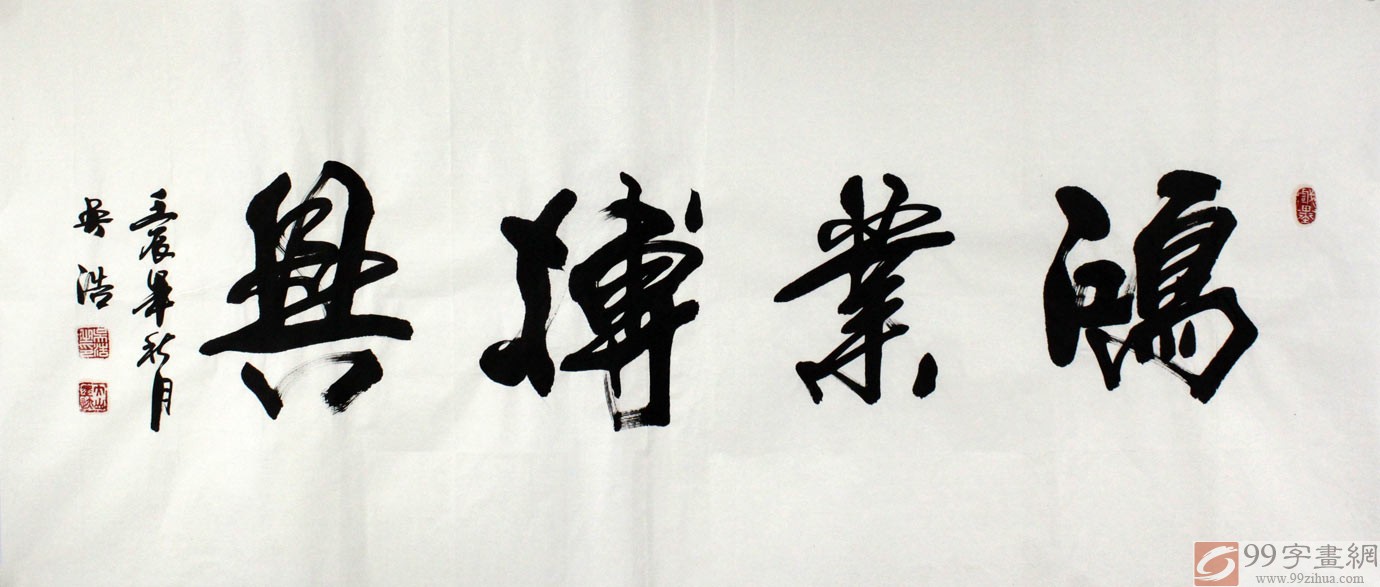 鴻業搏興
壬辰年秋月
吳浩
99字畫網
www.99zihua.com